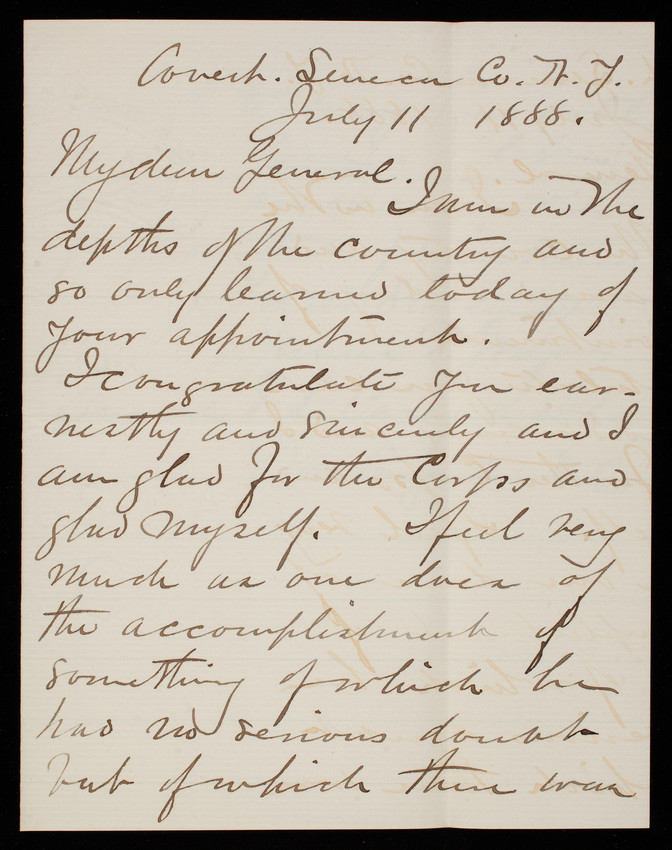 Covert. Seneca Co. N.Y.
July 11 1888.
My dear General.
I am in the
depths of the country and
so only learned today of
your appointment.
I congratulate you ear-
nestly and sincerely and I
am glad for the Corps and
glad myself. I feel very
much as one does of
the accomplishment of
something of which he
had no serious doubt
but of which there was